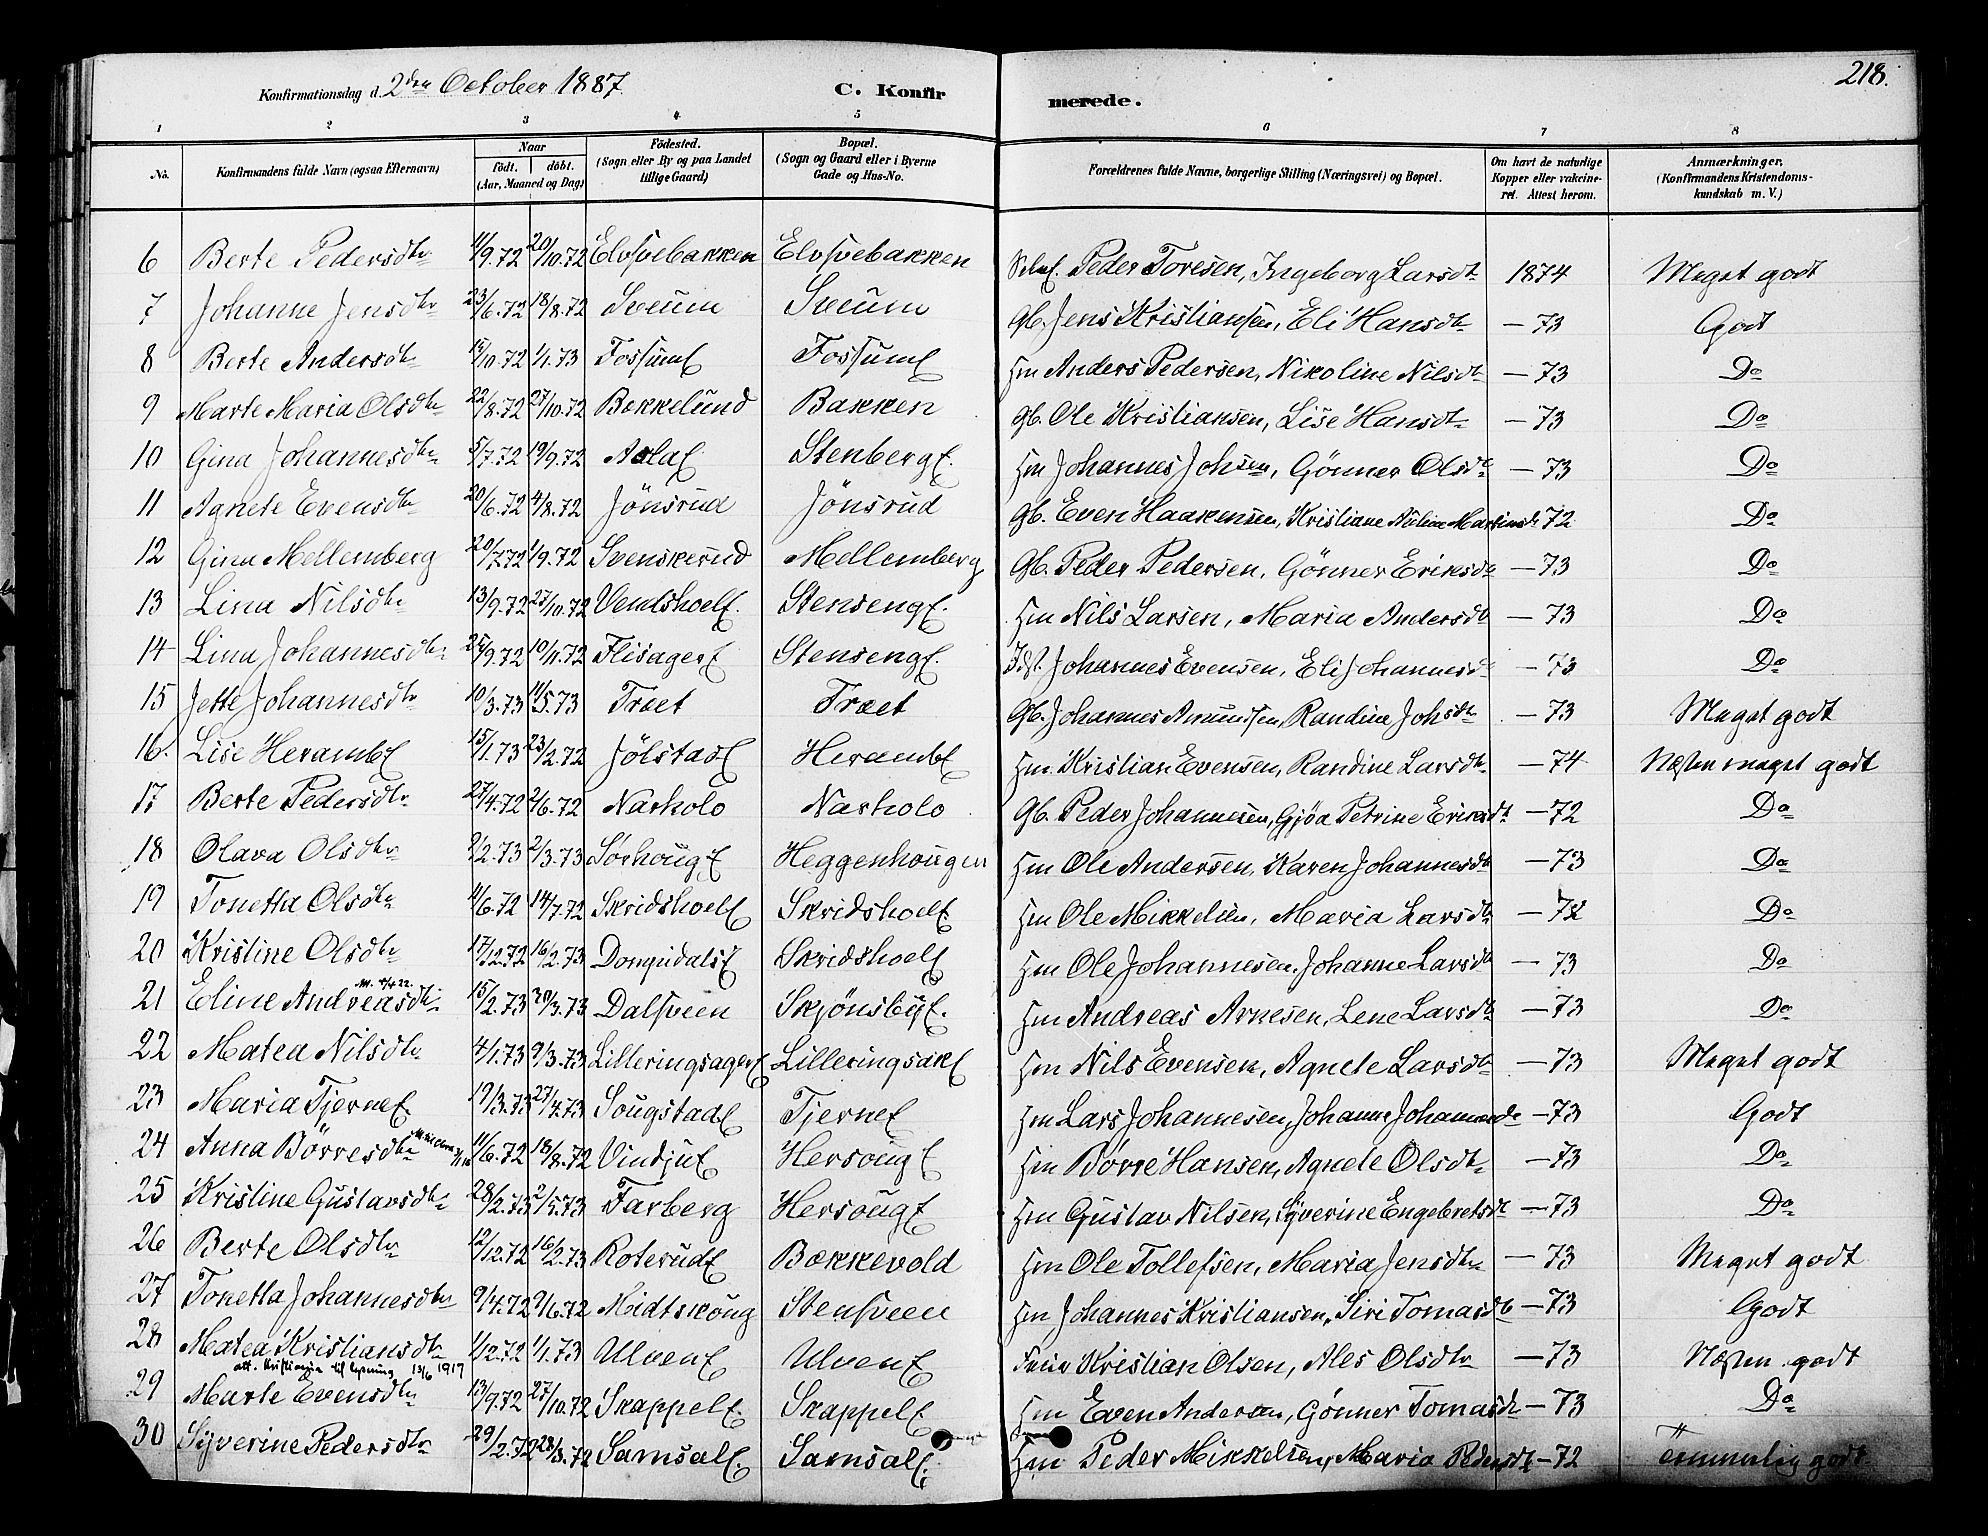 218.
Konfirmationsdag d. 2den October 1887. C. Konfirmerede.
1 2 3 4 5 6 7 8
No. Konfirmandens fulde Navn (ogsaa Efternavn) Naar födt. döbt. (Aar, Maaned og Dag) Födested. (Sogn eller By og paa Landet tillige Gaard) Bopæl. (Sogn og Gaard eller i Byerne Gade og Hus-No. Forældrenes fulde Navne, borgerlige Stilling (Næringsvei) og Bopæl. Om havt de naturlige Kopper eller vakcineret. Attest herom. Anmærkninger. (Konfirmandens Kristendomskundskab m. V.)
6 Berte Pedersdtr 11/9.72 20/10.72 Elvsvebakken Elvsvebakken Peder Toresen, Ingeborg Larsdtr 1874 Meget godt
7 Johanne Jensdtr 23/6.72 18/8.72 Sveum Sveum Gb. Jens Kristiansen, Eli Hansdtr — 73 Godt
8 Berte Andersdtr 15/10.72 1/1.73 Fossumf Fossumf Hm Anders Pedersen, Nikoline Nilsdtr — 73 Do
9 Marte Maria Olsdtr 22/8.72 27/10.72 Bekkelund Bakken Gb. Ole Kristiansen, Lise Hansdtr — 73 Do
10 Gina Johannesdtr 5/7.72 19/9.72 Stenbergf. Hm Johannes Johsen, Gönner Olsdtr — 73 Do
11 Agnete Evensdtr 20/6.72 4/8.72 Jönsrud Jönsrud Gb. Even Haakensen, Kristiane 72 Do
12 Gina Mellemberg 20/7.72 1/9.72 Svenskerud Mellemberg Gb. Peder Pedersen, Gönner Eriksdtr — 73 Do
13 Lina Nilsdtr 13/9.72 27/10.72 Stensengf. Hm Nils Larsen, Maria Andersdtr — 73 Do
14 Lina Johannesdtr 25/9.72 10/11.72 Flisagerf Stensengf. Johannes Evensen, Eli Johannesdtr — 73 Do
15 Jette Johannesdtr 10/3.73 11/5.73 Træet Træet Gb. Johannes Amundsen, Randine Johsdtr — 73 Meget godt
16. Lise Herambf 15/1.73 23/2.72 Jölstadf Herambf Hm. Kristian Evensen, Randine Larsdtr — 74 Næsten meget godt
17 Berte Pedersdtr 27/4.72 2/6.72 Narholo Narholo Gb. Peder Johannesen, Gjöa Petrine Eriksdtr — 72 Do
18 Olava Olsdtr 9/2.73 2/3.73 Sörhougf Heggenhougen Hm Ole Andersen, Karen Johannesdtr — 73 Do
19 Tonetta Olsdtr 11/6.72 14/7.72 Skridshoelf Skridshoelf Hm Ole Mikkelsen, Maria Larsdtr — 72 Do
20 Kristine Olsdtr 17/12.72 16/2.73 Skridshoelf Hm Ole Johannesen, Johanne Larsdtr — 73 Do
21 Eline Andreasdtr 15/2.73 30/3.73 Dalsveen Skjönsbyf. Hm Andreas Arnesen, Lene Larsdtr — 73 Do
22 Matea Nilsdtr 4/1.73 9/3.73 Lilleringsagerf Lilleringsakf Hm Nils Evensen, Agnete Larsdtr — 73 Meget godt
23 Maria Tjernef 19/3.73 27/4.73 Sougstadf Tjernef Hm Lars Johannesen, Johanne Johannesdtr — 73 Godt
24 Anna Börresdtr 11/6.72 18/8.72 Hersougf Hm Börre Hansen, Agnete Olsdtr — 73 Do
25 Kristine Gustavsdtr 28/2.73 2/5.73 Farberg Hersougf Hm Gustav Nilsen, Syverine Engebretsdtr — 73 Do
26 Berte Olsdtr 12/12.72 16/2.73 Roterudf Bækkevold Hm Ole Tollefsen, Maria Jensdtr — 73 Meget godt
27 Tonetta Johannesdtr 9/4.72 9/6.72 Midtskoug Stensveen Hm Johannes Kristiansen, Siri Tomasdtr — 73 Godt
28 Matea Kristiansdtr 1/12.72 1/1.73 Ulvenf Ulvenf Kristian Olsen, Ales Olsdtr — 73 Næsten godt
att. Kristiania til lysning 13/6 1917
29 Marte Evensdtr 13/9.72 27/10.72 Skappelf. Skappelf. Hm Even Andersen, Gönner Tomasdtr — 73 Do
30 Syverine Pedersdtr 29/2.72 28/3.72 Samsalf. Samsalf. Hm Peder Mikkelsen, Maria Pedersdtr — 72 Temmelig godt.